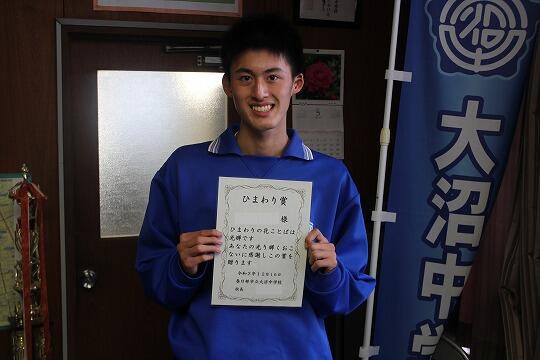 ひまわり賞
様
ひまわりの花ことばは
光輝です
あなたの光り輝くおこ
ないに感謝しこの賞を
贈ります
令和3年12月16日
春日部市立大沼中学校
校長
大沼中学